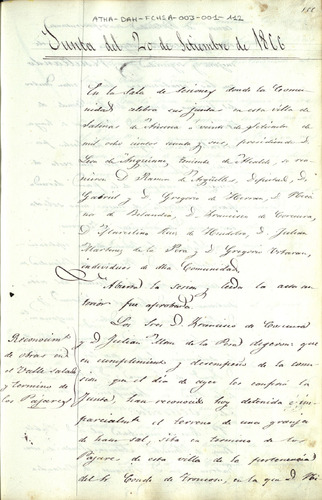 ATHA-DAH-FCHSA-003-001-112
Junta del 20 de Setiembre de 1866
En la Sala de sesiones donde la Comu-
nidad celebra sus juntas en esta villa de
Salinas de Añana a veinte de Setiembre
de mil ocho cientos sesenta y seis, presidiendo D.
de Angoiano, teniente de Alcalde, se reu-
nieron D. Ramon de Argüelles, Diputado, D.
Gabriel y D. Gregorio de Herran, D.
de Bolandia, D. Francisco de Corcuera,
D. Marcelino Ruiz de D. Julian
Martinez de la Pera y D. Gregorio
individuos de dha Comunidad.
Abierta la sesion y leida la acta an-
terior fue aprobada.
Reconocimto
de obras en
el Valle salado
y termino de
los Pajares
Los Sres D. Francisco de Corcuera
y D. Julian Mtnz de la Pera digeron que
en cumplimiento y desempeño de la comi-
sion que el dia de ayer les confirió la
Junta, han reconocido hoy detenida e im-
parcialmte el terreno de una granja
de hacer sal, sita en termino de los
Pajares de esta villa de la pertenencia
del Sr. Conde de en la que D.